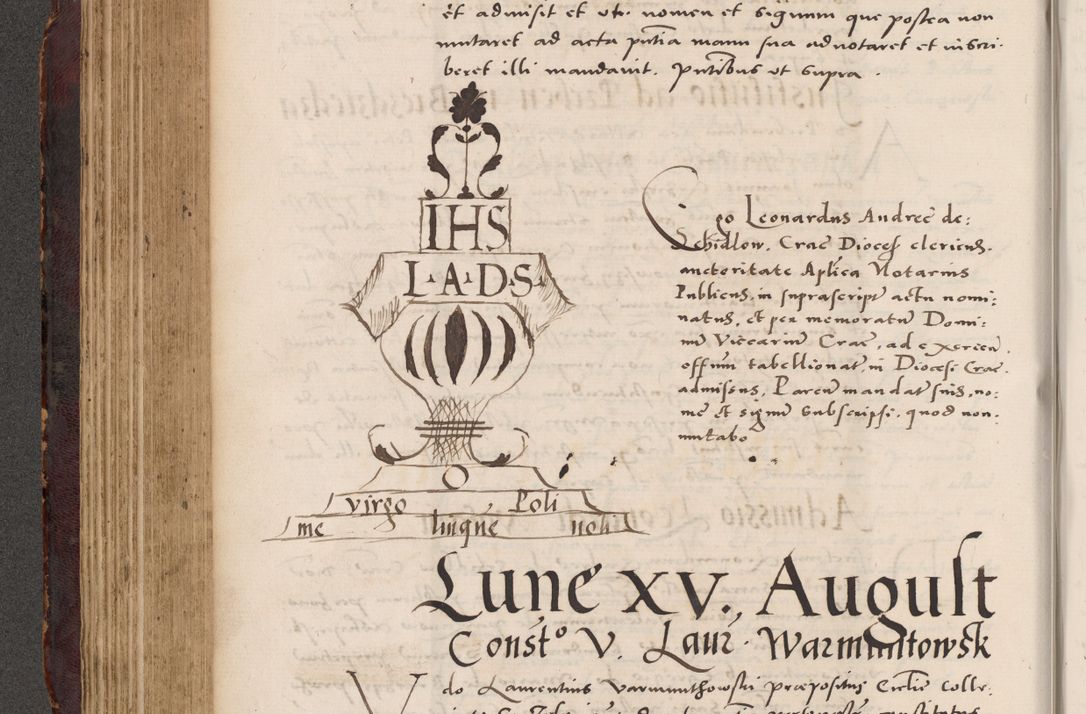 et admisit et vti nomen et signum que postea non
mutaret ad acta pntia manu sua adnotaret et inscri-
beret illi mandauit. Pntibus vt supra.
IHS
L·A·D·S
O
virgo Poli
me linque noli
Ego Leonardus Andree de:
clericus.
auctoritate Aplica Notarius
Publicus, in suprascript actu nomi-
natus, et per memoratu Domi:
nu Viccariu Crac, ad
offium tabellionat, in Diocese Crac.
admissus. Parcu mandat suis, no:
me et signu subscripsi, quod non
mutabo
Lune xv. August
Const° V. Laur. Warmuntowsk
do Laurentius varmunthowski præpositus Colle: